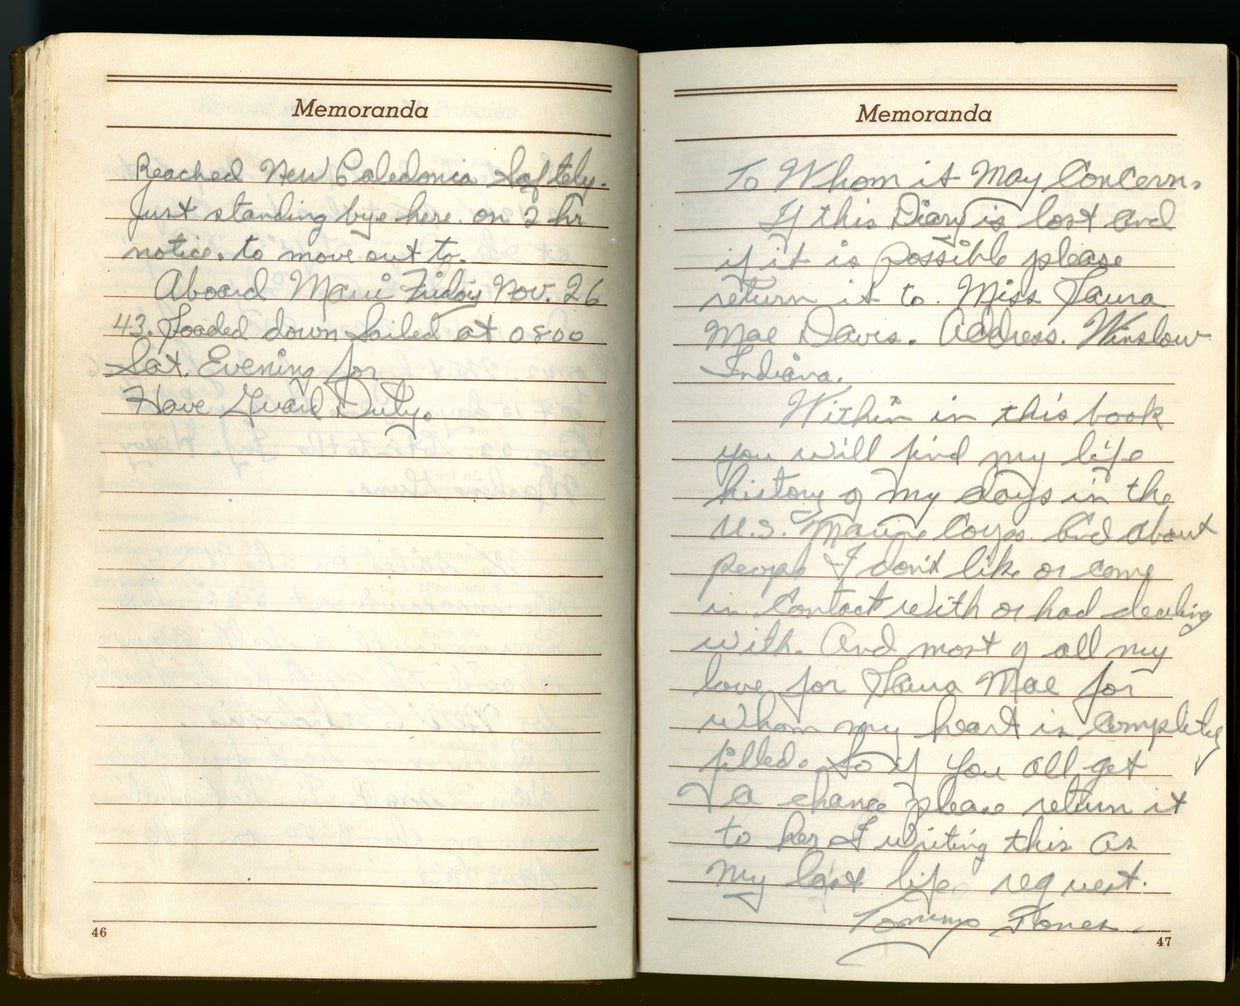 Memoranda
Reached New Caledonia Saftely.
Just standing bye here on 2 hr
notice. to move out to.
Aboard Maui Friday Nov. 26
43. Loaded down Sailed at 0800
Sat. Evening for
Have Guard Duty.
46
Memoranda
To Whom it May Concern.
If this Diary is lost and
if it is possible please
return it to. Miss Laura
Mae Davis. Address. Winslow
Indiana.
Within in this book
you will find my life
history of my days in the
U.S. Marine Corps. And about
people I don't like or come
in Contact with or had dealing
with. And most of all my
love for Laura Mae for
whom my heart is completly
filled. So if you all get
a chance please return it
to her I writing this as
My last life request.
Tommy Jones.
47